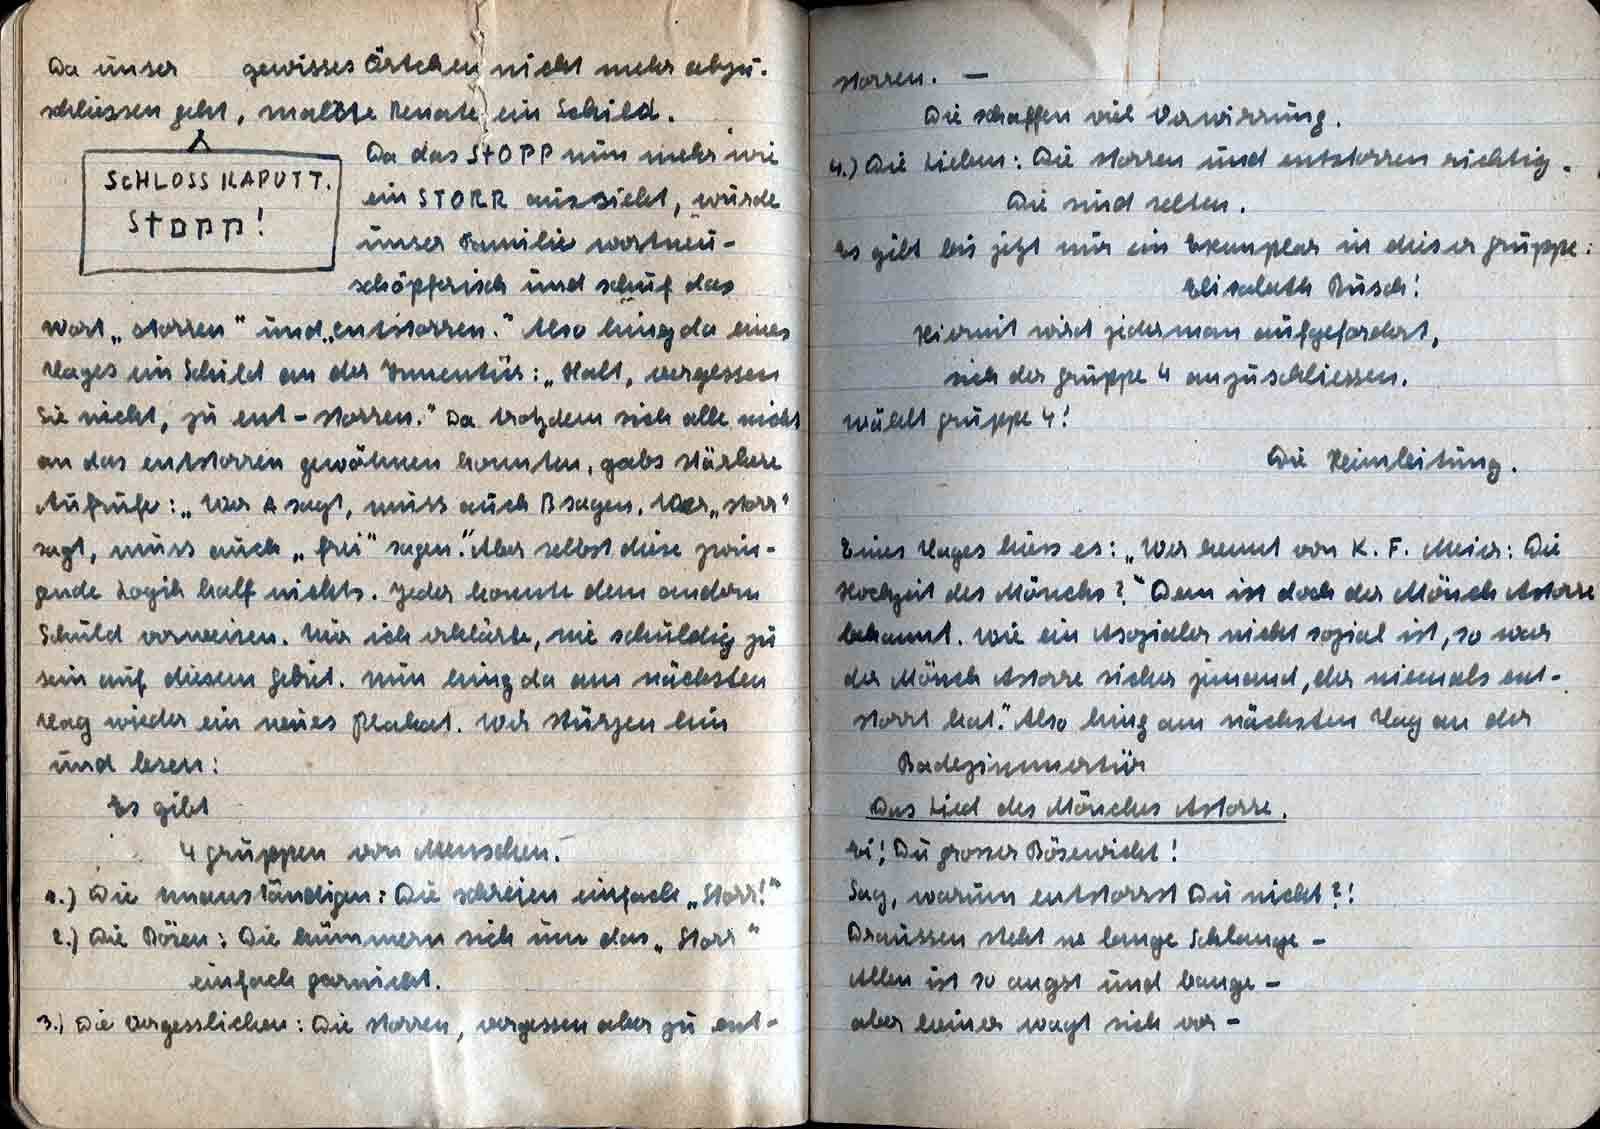 Da unser gewisses Örtchen nicht mehr abzu-
schliessen geht, malte Renate ein Schild.
SCHLOSS KAPUTT.
STOPP!
Da das STOPP nun mehr wie
ein STORR aussieht, wurde
unser Familie wortneu-
schöpferisch und schuf das
Wort „storren" und „entstorren." Also hing da eines
Tages ein Schild an der Innentür: „Halt, vergessen
Sie nicht, zu ent-storren." Da trotzdem sich alle nicht
an das entstorren gewöhnen konnten, gabs stärkere
Aufrufe: „Wer A sagt, muss auch B sagen. Wer „storr"
sagt, muss auch „frei" sagen." Aber selbst diese zwin-
gende Logik half nichts. Jeder konnte dem andern
Schuld vorweisen. Nur ich erklärte, nie schuldig zu
sein auf diesem Gebiet. Nun hing da am nächsten
Tag wieder ein neues Plakat. Wir stürzen hin
und lesen:
Es gibt
4 Gruppen von Menschen.
1.) Die Unanständigen: Die schreien einfach „Storr!"
2.) Die Bösen: Die kümmern sich um das „Storr"
einfach garnicht.
3.) Die Vergesslichen: Die storren, vergessen aber zu ent-
storren. —
Die schaffen viel Verwirrung.
4.) Die Lieben: Die storren und entstorren richtig.
Die sind selten.
Es gibt bis jetzt nur ein Exemplar in dieser Gruppe:
Elisabeth Busch!
Hiermit wird jederman aufgefordert,
sich der Gruppe 4 anzuschliessen.
Wählt Gruppe 4!
Die Heimleitung.
Eines Tages hiess es: „Wer kennt von K. F. Meier: Die
Hochzeit des Mönchs?" Denn ist doch der Mönch Astorre
bekannt. Wie ein Asozialer nicht sozial ist, so war
der Mönch Astorre sicher jemand, der niemals ent-
storrt hat." Also hing am nächsten Tag an der
Badezimmertür
Das Lied des Mönches Astorre.
Ei! Du grosser Bösewicht!
Sag, warum entstorrst Du nicht?!
Draussen steht ne lange Schlange –
Allen ist so angst und bange –
aber keiner wagt sich vor –